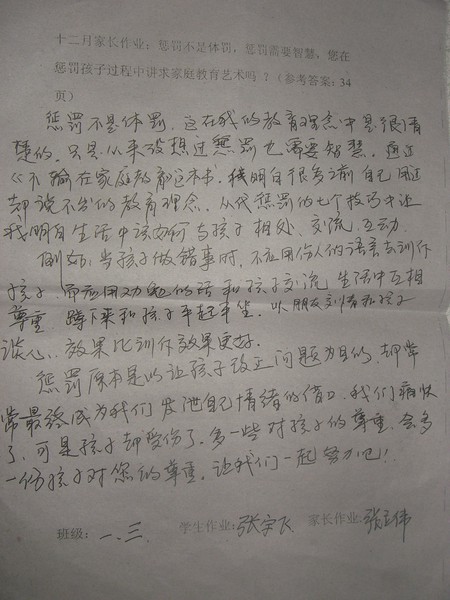 十二月家长作业：惩罚不是体罚，惩罚需要智慧，您在
惩罚孩子过程中讲求家庭教育艺术吗？（参考答案：34
页）
惩罚不是体罚，这在我的教育理念中是很清
楚的，只是从来没想过惩罚也需要智慧，通过
《不输在家庭教育这本书，我明白很多之前自己用过
却说不出的教育理念，从代惩罚的七个技巧中让
我明白生活中该如何与孩子相处、交流、互动。
例如：当孩子做错事时，不应用伤人的语言去训斥
孩子，而应用功勉的话和孩子交流，生活中互相
尊重，蹲下来和孩子平起平坐，以朋友交情和孩子
谈心，效果比训斥效果更好。
惩罚原本是以让孩子改正问题为目的，却常
常最终成为我们发泄自己情绪的借口，我们痛快
了，可是孩子却受伤了，多一些对孩子的尊重，会多
一份孩子对您的尊重，让我们一起努力吧！
班级：一.三. 学生作业：张宇飞 家长作业：张立伟